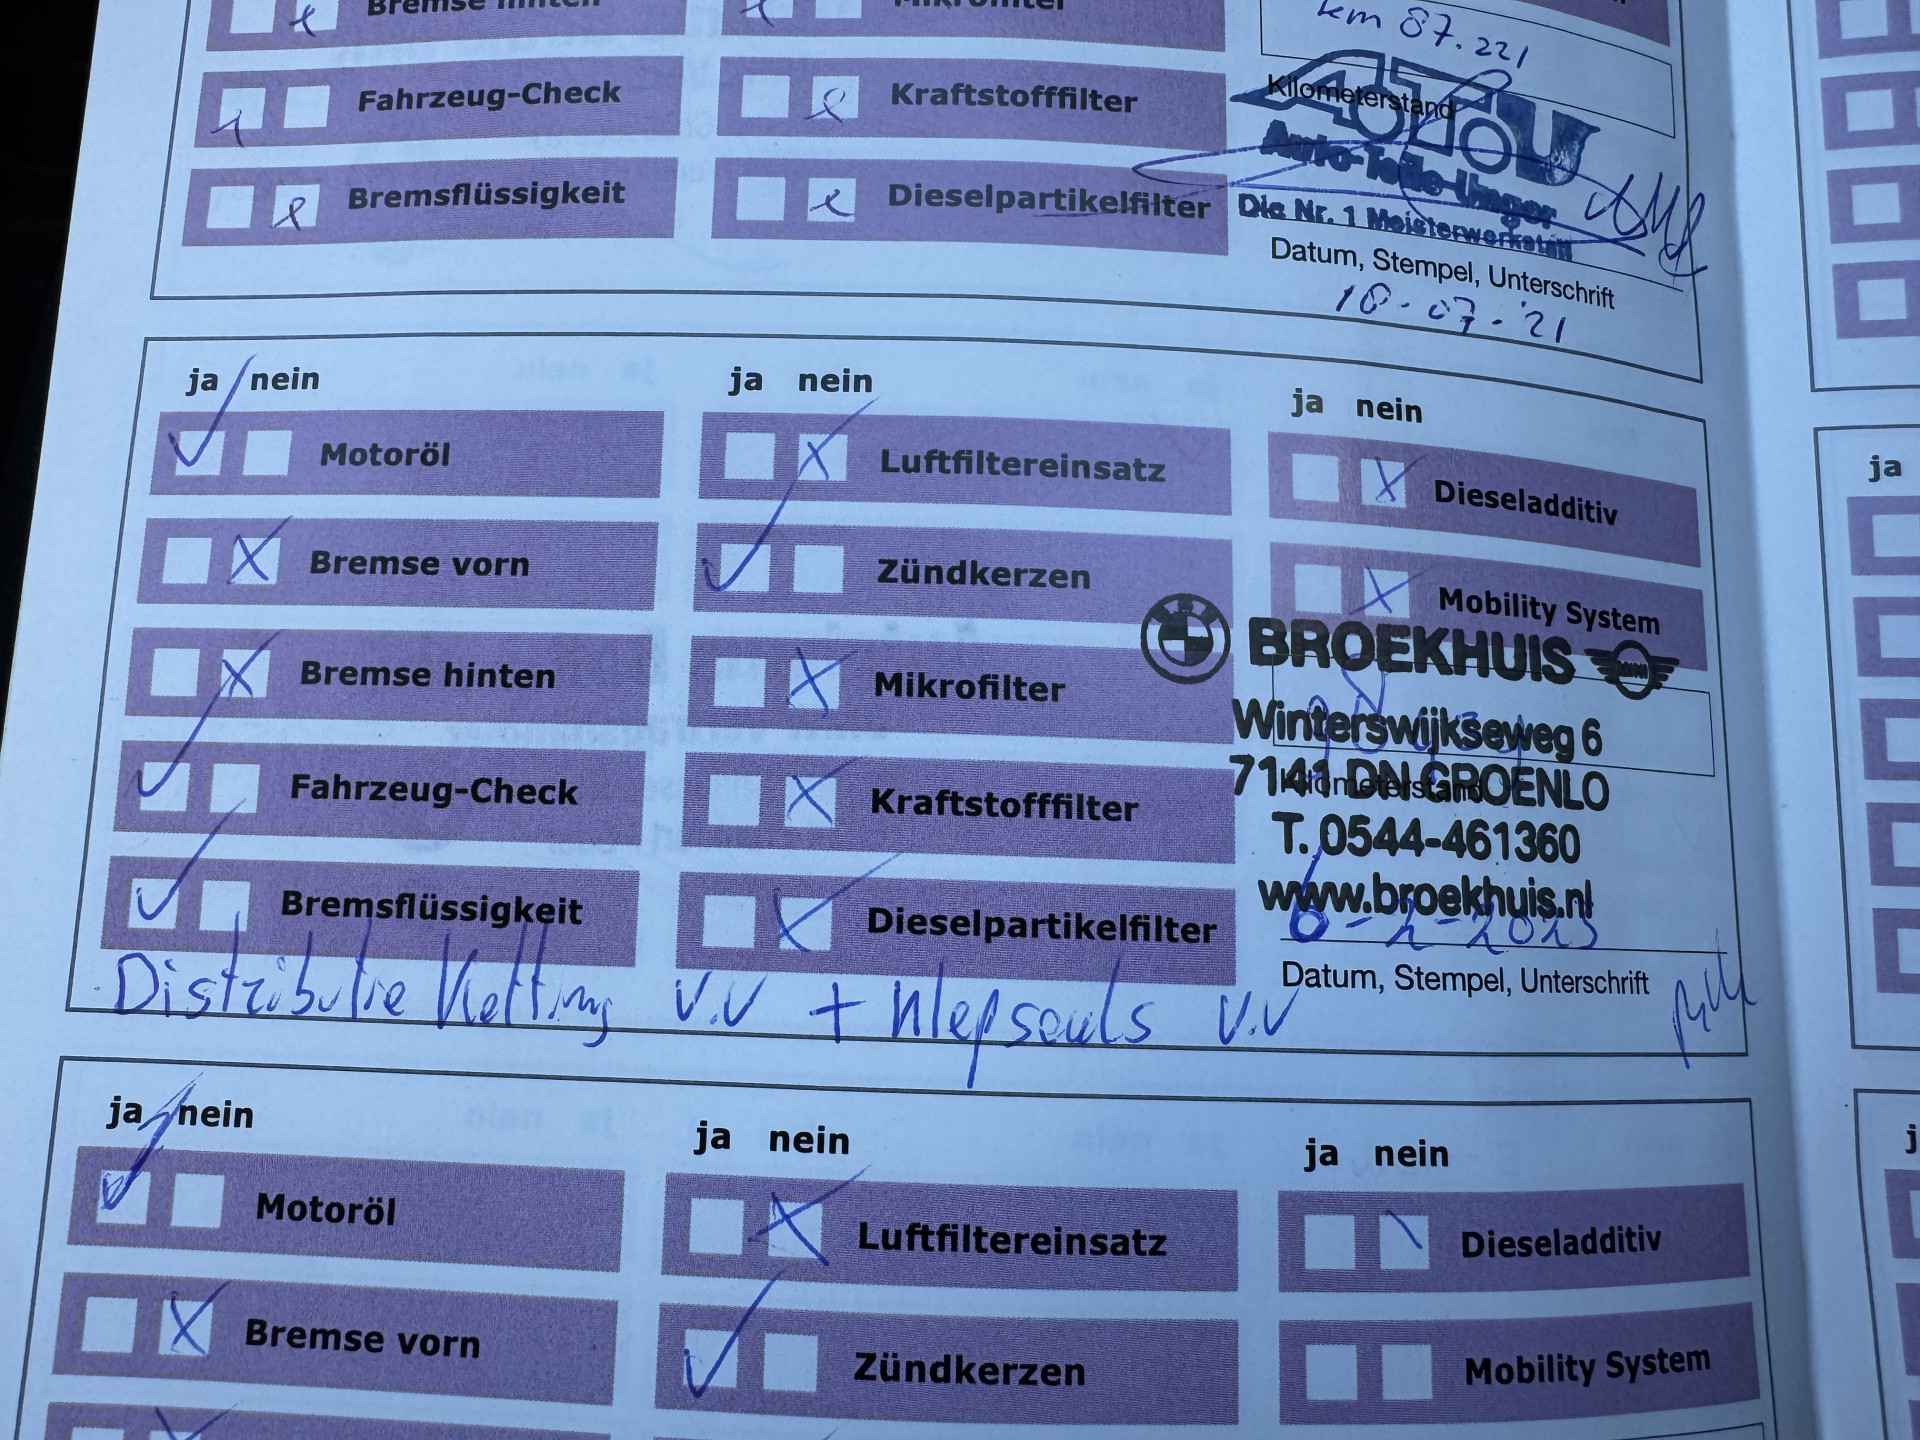 Bremse hinten
Mikrofilter
km 87.221
Fahrzeug-Check
Kraftstofffilter
Kilometerstand
ATU
Auto-Teile-Unger
Die Nr. 1 Meisterwerkstatt
Bremsflüssigkeit
Dieselpartikelfilter
Datum, Stempel, Unterschrift
18-07-'21
ja nein
ja nein
ja nein
Motoröl
Luftfiltereinsatz
Dieseladditiv
Bremse vorn
Zündkerzen
Mobility System
Bremse hinten
Mikrofilter
BROEKHUIS
MINI
Winterswijkseweg 6
7141 DN GROENLO
Kilometerstand
T. 0544-461360
www.broekhuis.nl
Fahrzeug-Check
Kraftstofffilter
Bremsflüssigkeit
Dieselpartikelfilter
6-2-2023
Datum, Stempel, Unterschrift
Distributie Ketting v.v + Klepseals v.v
ja nein
ja nein
ja nein
Motoröl
Luftfiltereinsatz
Dieseladditiv
Bremse vorn
Zündkerzen
Mobility System
ja